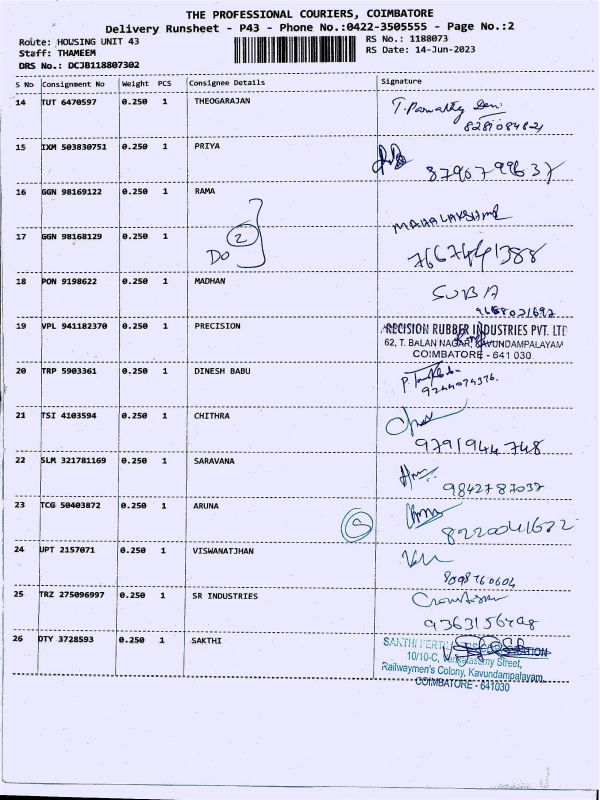 THE PROFESSIONAL COURIERS, COIMBATORE
Delivery Runsheet - P43 - Phone No.:0422-3505555 - Page No.:2
Route: HOUSING UNIT 43 RS No.: 1188073
Staff: THAMEEM RS Date: 14-Jun-2023
DRS No.: DCJB118807302
S No Consignment No Weight PCS Consignee Details Signature
14 TUT 6470597 0.250 1 THEOGARAJAN
15 IXM 503830751 0.250 1 PRIYA
8790799637
16 GGN 98169122 0.250 1 RAMA
MAHALAKSHMI
17 GGN 98168129 0.250 1
2
DO
18 PON 9198622 0.250 1 MADHAN
SUBA
19 VPL 941182370 0.250 1 PRECISION
PRECISION RUBBER INDUSTRIES PVT. LTD
62, T. BALAN NAGAR, KAVUNDAMPALAYAM
COIMBATORE - 641 030
20 TRP 5903361 0.250 1 DINESH BABU
21 TSI 4103594 0.250 1 CHITHRA
9791944748
22 SLM 321781169 0.250 1 SARAVANA
9842787037
23 TCG 50403872 0.250 1 ARUNA
24 UPT 2157071 0.250 1 VISWANATJHAN
8098760604
25 TRZ 275096997 0.250 1 SR INDUSTRIES
26 DTY 3728593 0.250 1 SAKTHI
SAKTHI
10/10-C, Venkatasamy Street,
Railwaymen's Colony, Kavundampalayam,
COIMBATORE - 641030